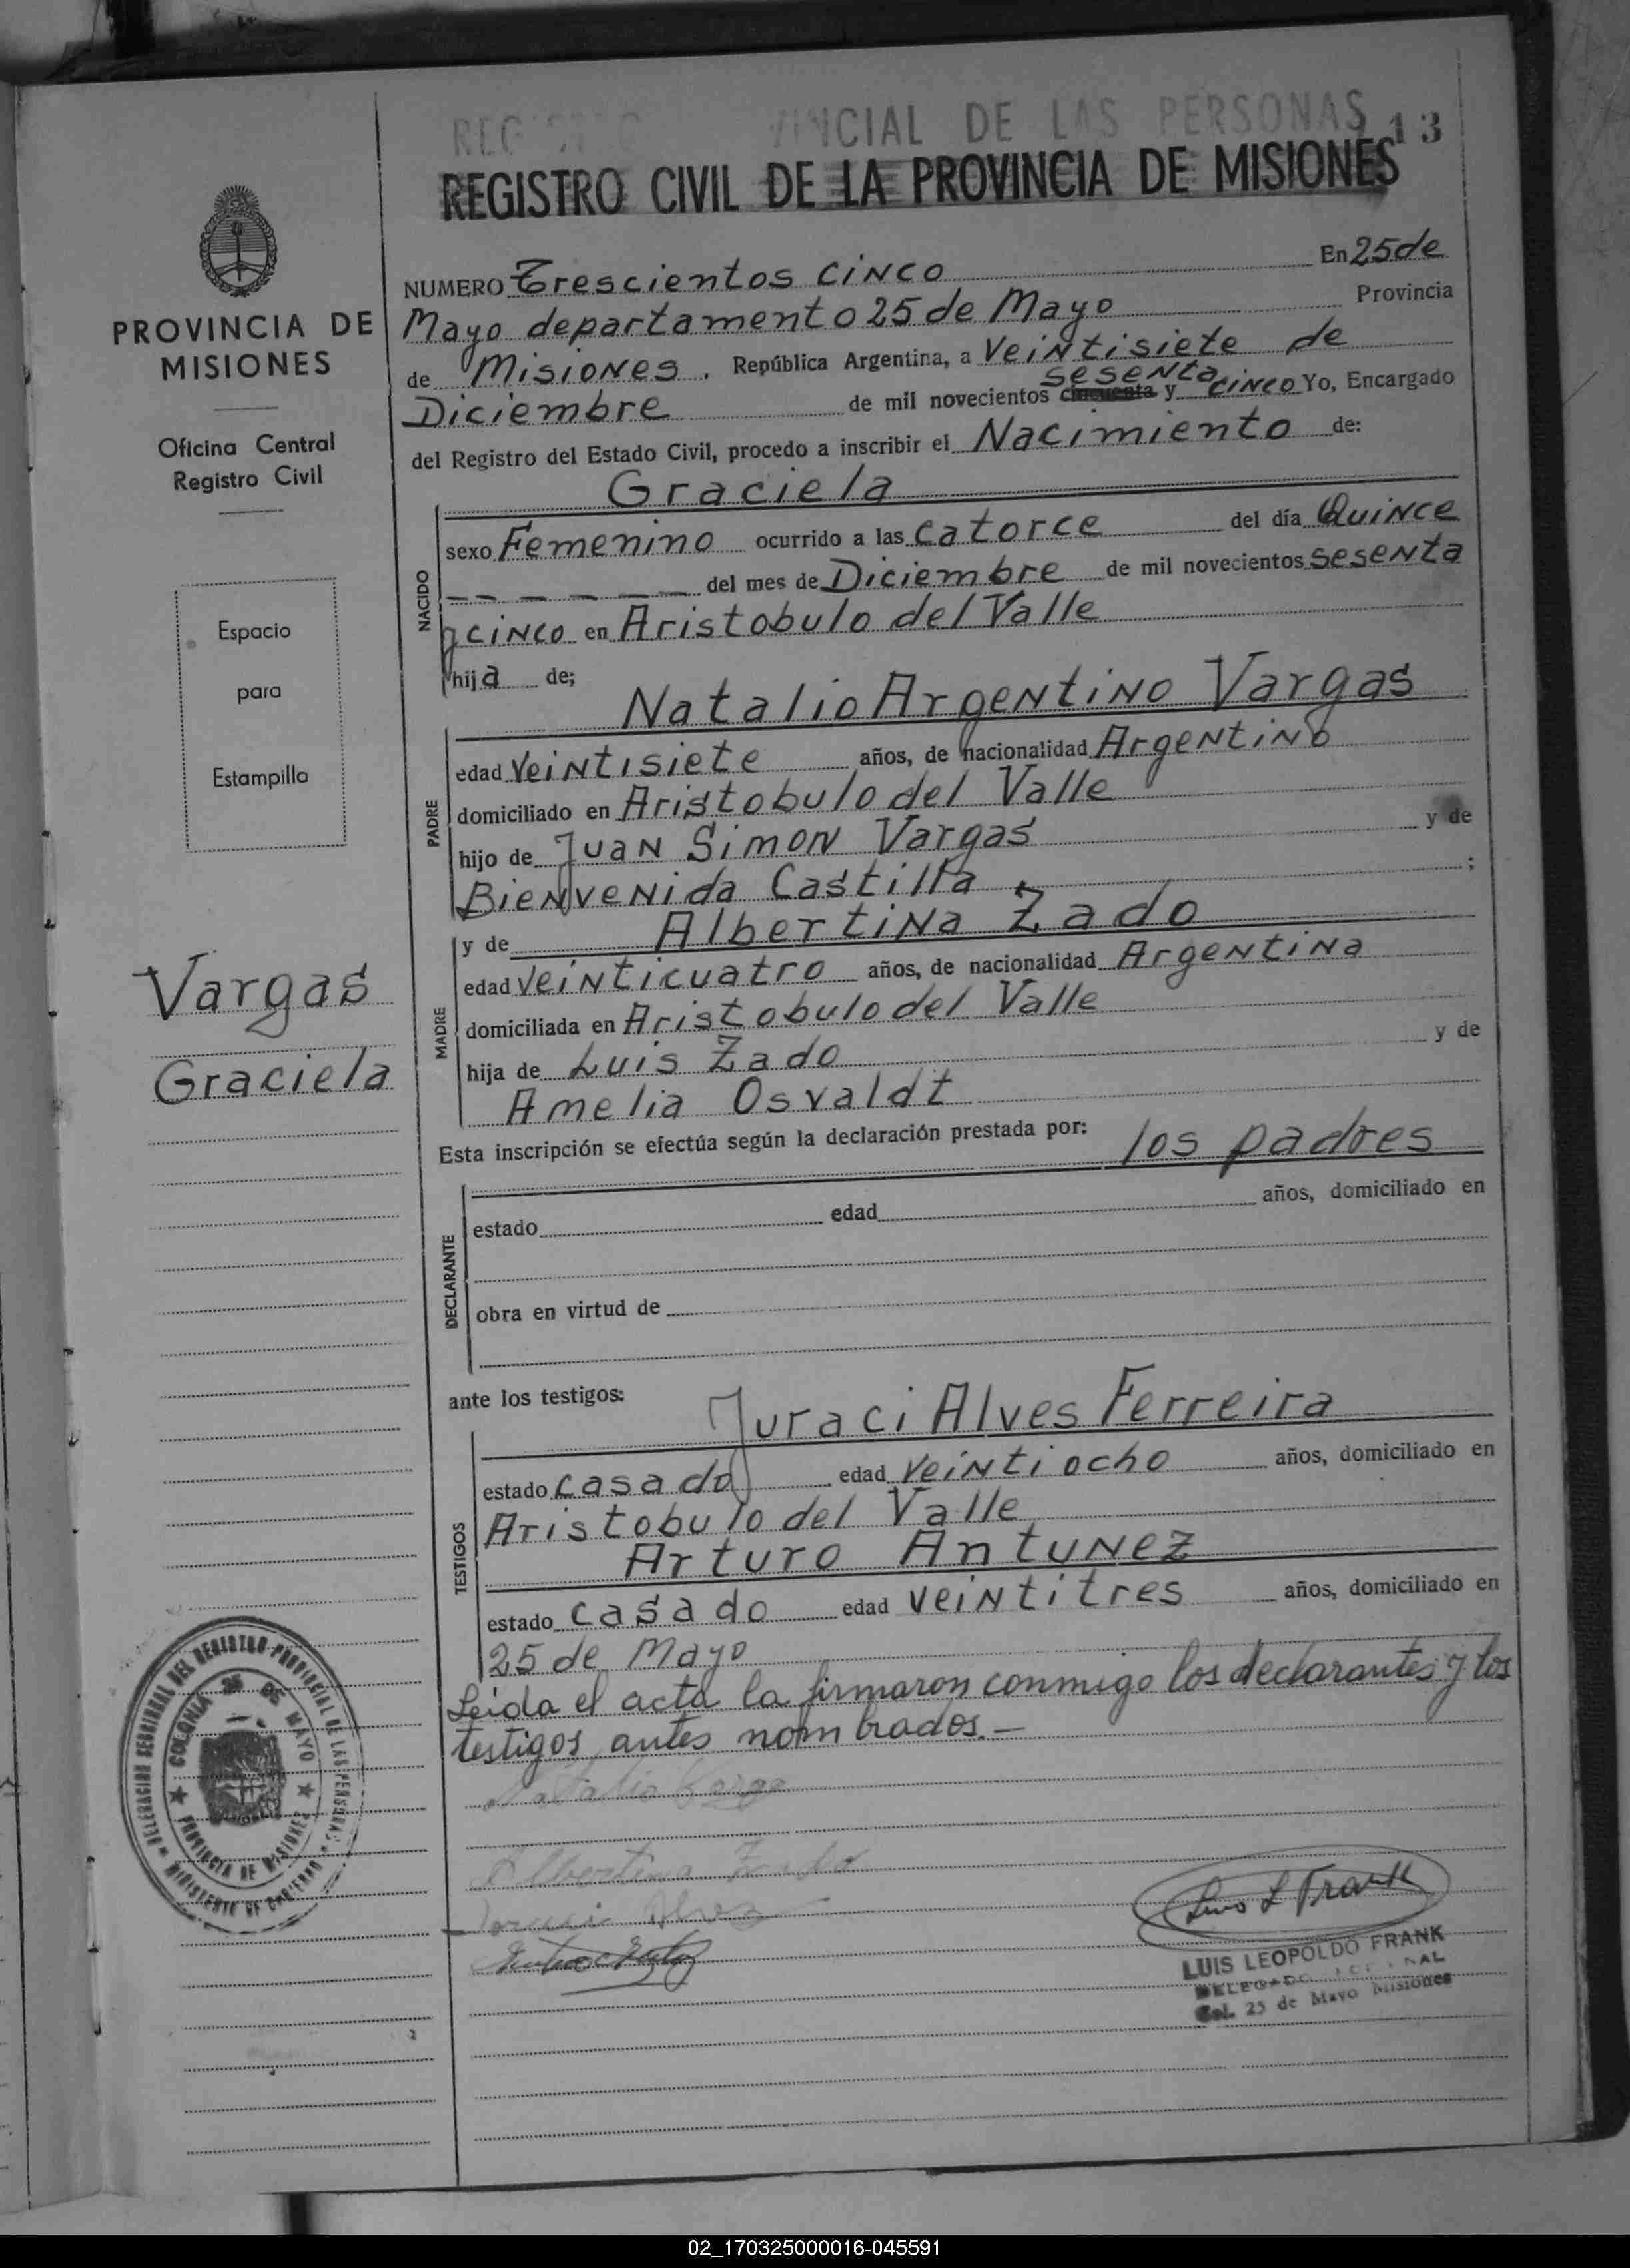 PROVINCIAL DE LAS PERSONAS 13
REGISTRO CIVIL DE LA PROVINCIA DE MISIONES
PROVINCIA DE
MISIONES
Oficina Central
Registro Civil
Espacio
para
Estampilla
Vargas
Graciela
NUMERO Trescientos cinco En 25 de
Mayo departamento 25 de Mayo Provincia
de Misiones, República Argentina, a Veintisiete de
sesenta
Diciembre de mil novecientos cincuenta y cinco Yo, Encargado
del Registro del Estado Civil, procedo a inscribir el Nacimiento de:
NACIDO
Graciela
sexo Femenino ocurrido a las catorce del día Quince
— — — — — — del mes de Diciembre de mil novecientos sesenta
y cinco en Aristobulo del Valle
hija de;
PADRE
Natalio Argentino Vargas
edad Veintisiete años, de nacionalidad Argentino
domiciliado en Aristobulo del Valle
hijo de Juan Simon Vargas y de
Bienvenida Castilla ;
MADRE
y de Albertina Zado
edad veinticuatro años, de nacionalidad Argentina
domiciliada en Aristobulo del Valle
hija de Luis Zado y de
Amelia Osvaldt
Esta inscripción se efectúa según la declaración prestada por: los padres
DECLARANTE
estado edad años, domiciliado en
obra en virtud de
ante los testigos:
TESTIGOS
Juraci Alves Ferreira
estado casado edad Veintiocho años, domiciliado en
Aristobulo del Valle
Arturo Antunez
estado casado edad veintitres años, domiciliado en
25 de Mayo
Leida el acta la firmaron conmigo los declarantes y los
testigos antes nombrados.—
Albertina Zado
Luis L Frank
LUIS LEOPOLDO FRANK
DELEGADO
Col. 25 de Mayo Misiones
DELEGACION SECCIONAL DEL REGISTRO PROVINCIAL DE LAS PERSONAS
MINISTERIO DE GOBIERNO
COLONIA 25 DE MAYO
PROVINCIA DE MISIONES
02_170325000016-045591